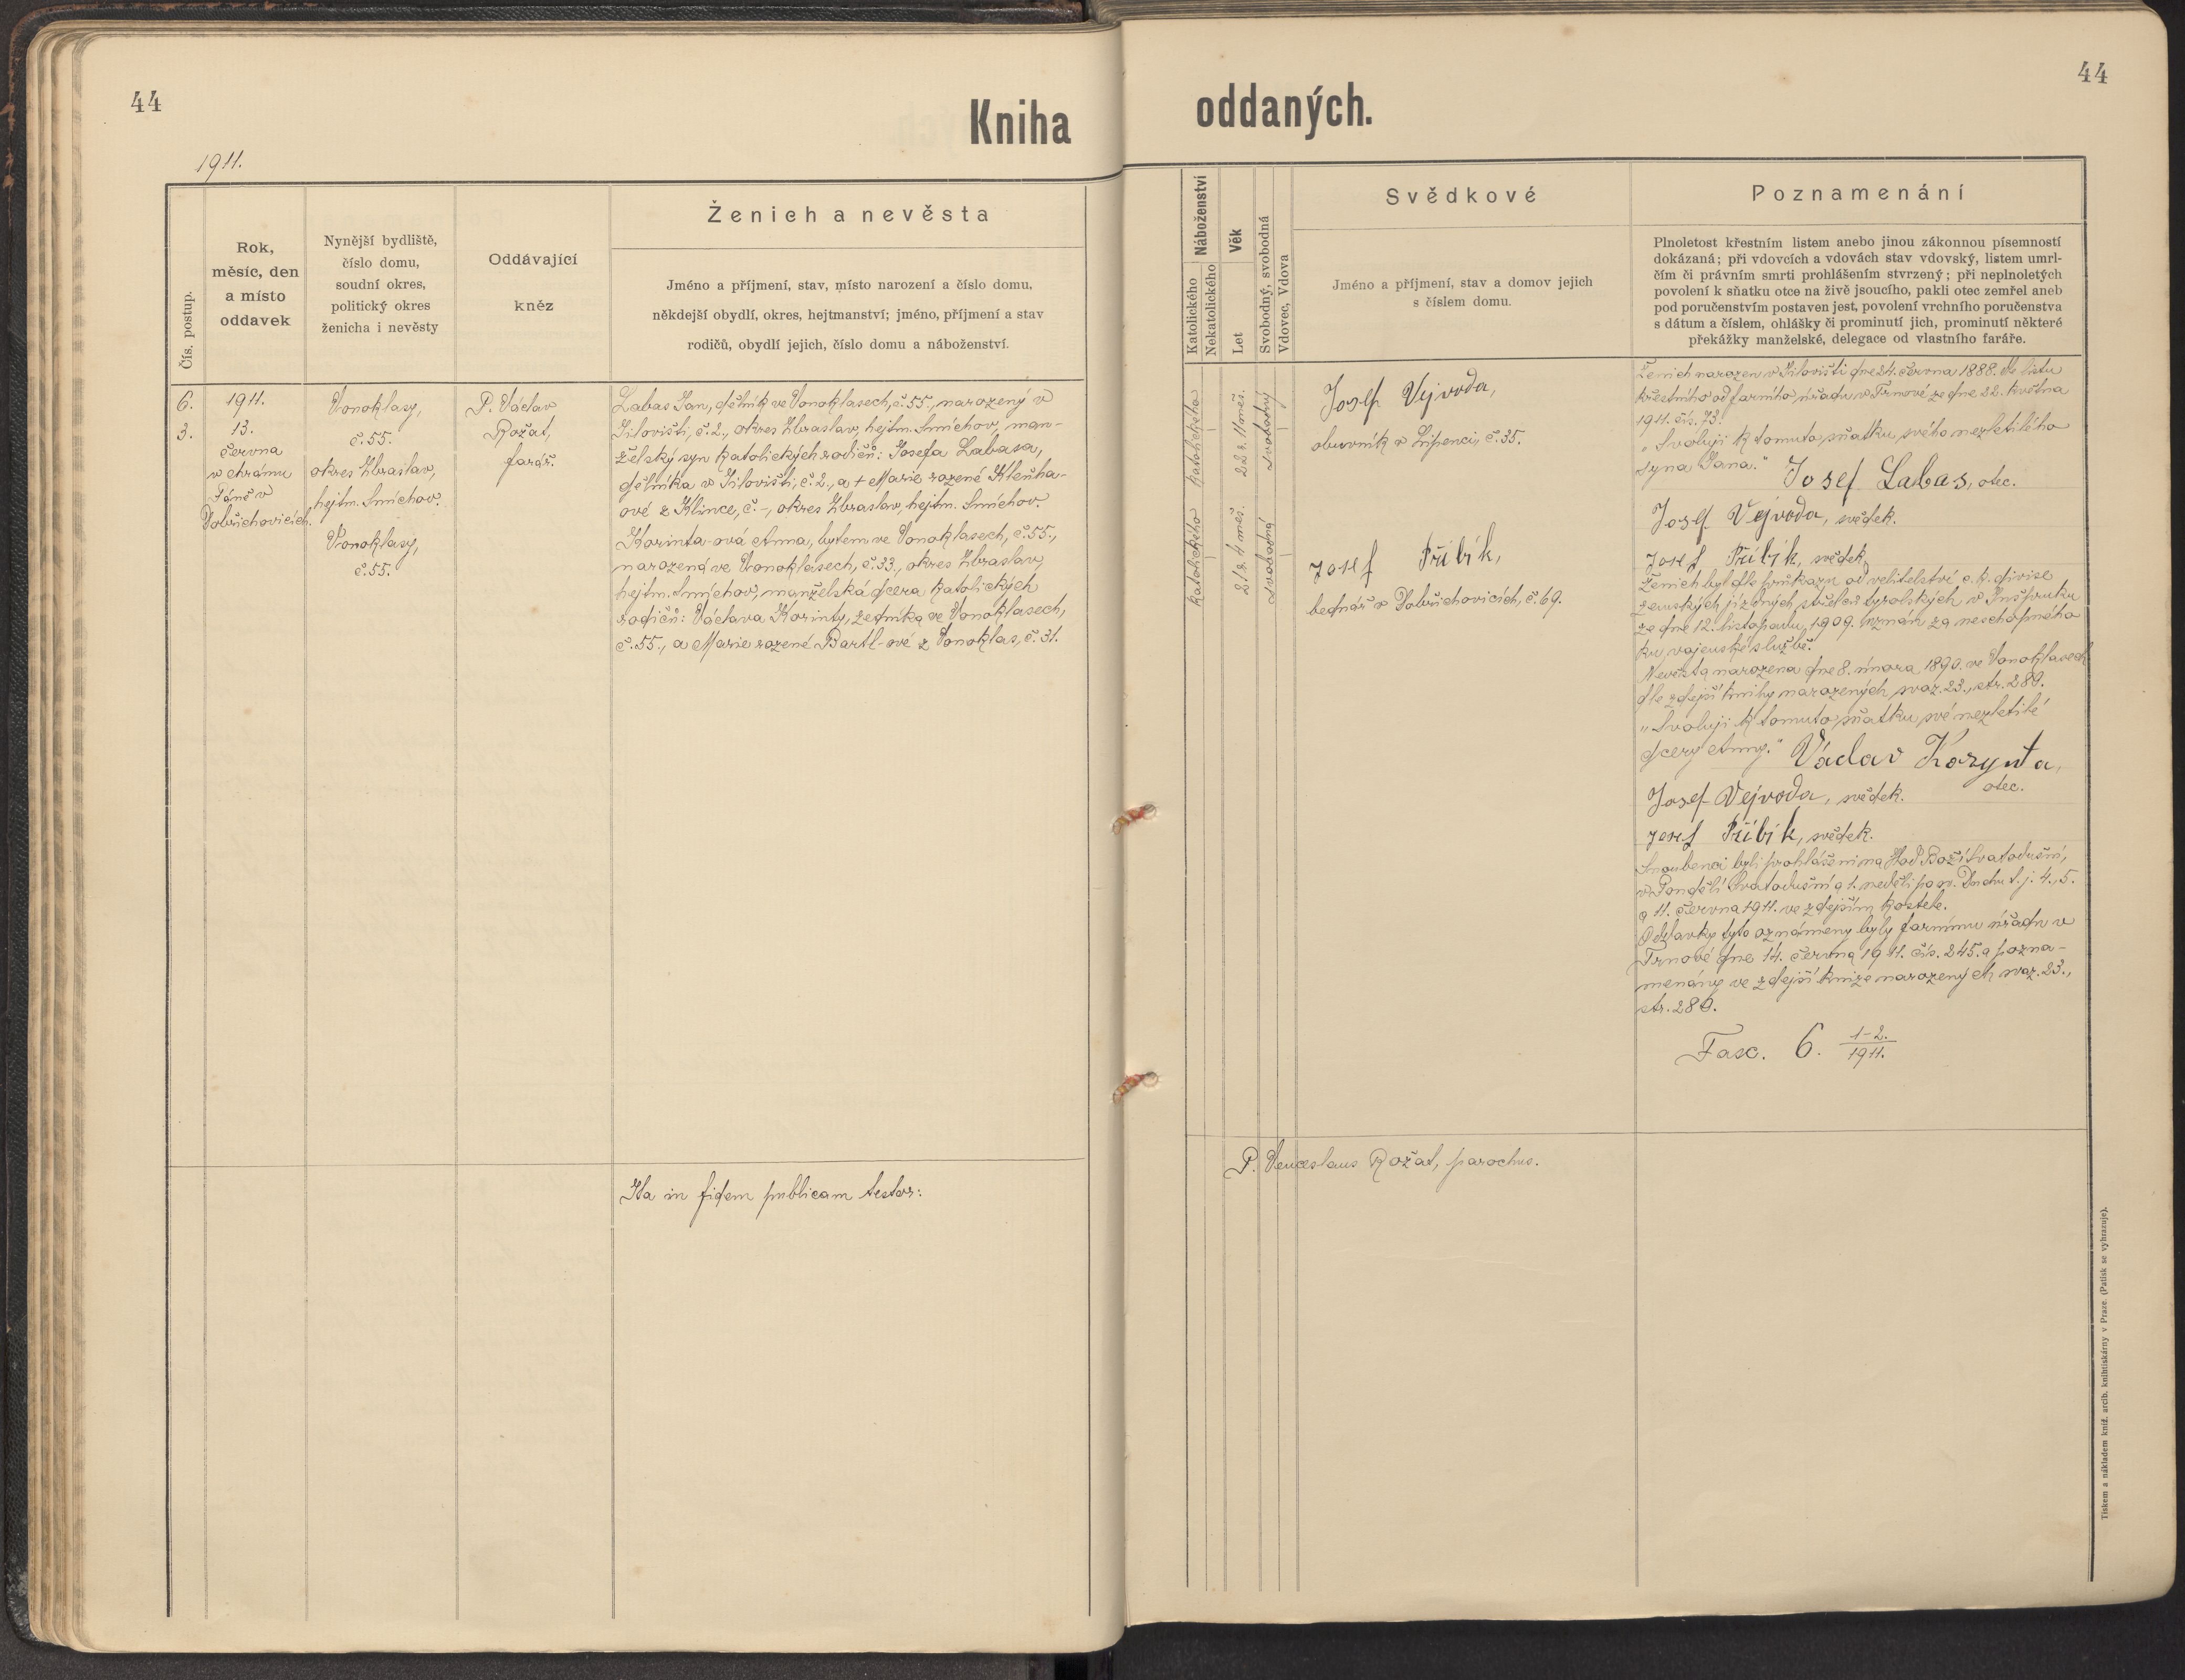 44
Kniha
1911.
Čís. postup.
Rok,
měsíc, den
a místo
oddavek
Nynější bydliště,
číslo domu,
soudní okres,
politický okres
ženicha i nevěsty
Oddávající
kněz
Ženich a nevěsta
Jméno a příjmení, stav, místo narození a číslo domu,
někdejší obydlí, okres, hejtmanství; jméno, příjmení a stav
rodičů, obydlí jejich, číslo domu a náboženství.
6.
3.
1911.
13.
června
v chrámu
Páně v
Dobřichovicích.
Vonoklasy,
č. 55.
okres Zbraslav,
hejtm. Smíchov.
Vonoklasy,
č. 55.
P. Václav
Rožat,
farář.
Labas Jan, dělník ve Vonoklasech, č. 55., narozený v
Jílovišti, č. 2., okres Zbraslav, hejtm. Smíchov, man-
želský syn katolických rodičů: Josefa Labasa,
dělníka v Jílovišti, č. 2., a + Marie rozené Kleňha-
ové z Klince, č. -, okres Zbraslav, hejtm. Smíchov.
Korinta-ová Anna, bytem ve Vonoklasech, č. 55.,
narozená ve Vonoklasech, č. 33., okres Zbraslav,
hejtm. Smíchov, manželská dcera katolických
rodičů: Václava Korinty, zedníka ve Vonoklasech,
č. 55., a Marie rozené Bartl-ové z Vonoklas, č. 31.
Ita in fidem publicam testor:
44
oddaných.
Náboženství
Katolického
Nekatolického
Věk
Let
Svobodný, svobodná
Vdovec, Vdova
Svědkové
Jméno a příjmení, stav a domov jejich
s číslem domu.
Poznamenání
Plnoletost křestním listem anebo jinou zákonnou písemností
dokázaná; při vdovcích a vdovách stav vdovský, listem umrl-
čím či právním smrti prohlášením stvrzený; při neplnoletých
povolení k sňatku otce na živě jsoucího, pakli otec zemřel aneb
pod poručenstvím postaven jest, povolení vrchního poručenstva
s dátum a číslem, ohlášky či prominutí jich, prominutí některé
překážky manželské, delegace od vlastního faráře.
Katolického
22 r. 11 měs.
Svobodný
Katolického
21 r. 4 měs.
Svobodná
Josef Vejvoda,
obuvník v Lipenci, č. 35.
Josef Přibík,
bednář v Dobřichovicích, č. 69.
Ženich narozen v Jílovišti dne 24. června 1888. dle listu
křestního od farního úřadu v Trnové ze dne 22. května
1911. čís. 73.
"Svoluji k tomuto sňatku svého nezletilého
syna Jana." Josef Labas, otec.
Josef Vejvoda, svědek.
Josef Přibík, svědek.
Ženich byl dle průkazu od velitelství c. k. divise
zemských jízdných střelců tyrolských v Inšpruku
ze dne 12. listopadu 1909. uznán za neschopného
ku vojenské službě.
Nevěsta narozena dne 8. února 1890. ve Vonoklasech
dle zdejší knihy narozených svaz. 23., str. 280.
"Svoluji k tomuto sňatku své nezletilé
dcery Anny." Václav Korynta,
otec.
Josef Vejvoda, svědek.
Josef Přibík, svědek.
Snoubenci byli prohlášeni na Hod Boží Svatodušní,
v Pondělí Svatodušní a 1. neděli po sv. Duchu t. j. 4., 5.
a 11. června 1911. ve zdejším kostele.
Oddavky tyto oznámeny byly farnímu úřadu v
Trnové dne 14. června 1911. čís. 245. a pozna-
menány ve zdejší knize narozených svaz. 23.,
str. 280.
Fasc. 6. 1-2./1911.
P. Venceslaus Rožat, parochus.
Tiskem a nákladem kníž. arcib. knihtiskárny v Praze. (Patisk se vyhrazuje).